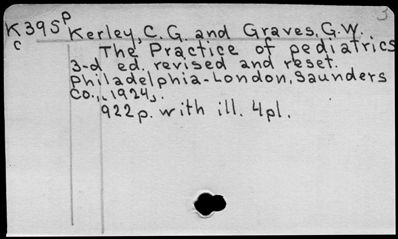 3
K395p Kerley, C. G. and Graves, G. W.
c The Practice of pediatrics
3-d ed. revised and reset.
Philadelphia-London, Saunders
Co., 1924.
922p. with ill. 4pl.